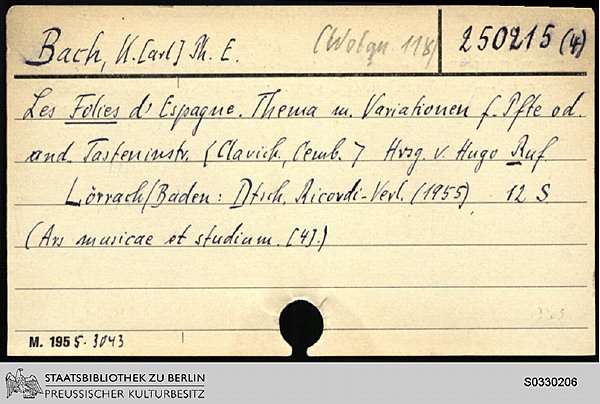 Bach, K.[arl] Ph. E. (Wotqu 118) 250215 (4)
Les Folies d'Espagne. Thema m. Variationen f. Pfte od.
and. Tasteninstr. (Clavich., Cemb.) Hrsg. v. Hugo Ruf
Lörrach/Baden: Dtsch. Ricordi-Verl. (1955) 12 S.
(Ars musicae et studium. [4].)
M. 1955. 3043
STAATSBIBLIOTHEK ZU BERLIN
PREUSSISCHER KULTURBESITZ
S0330206